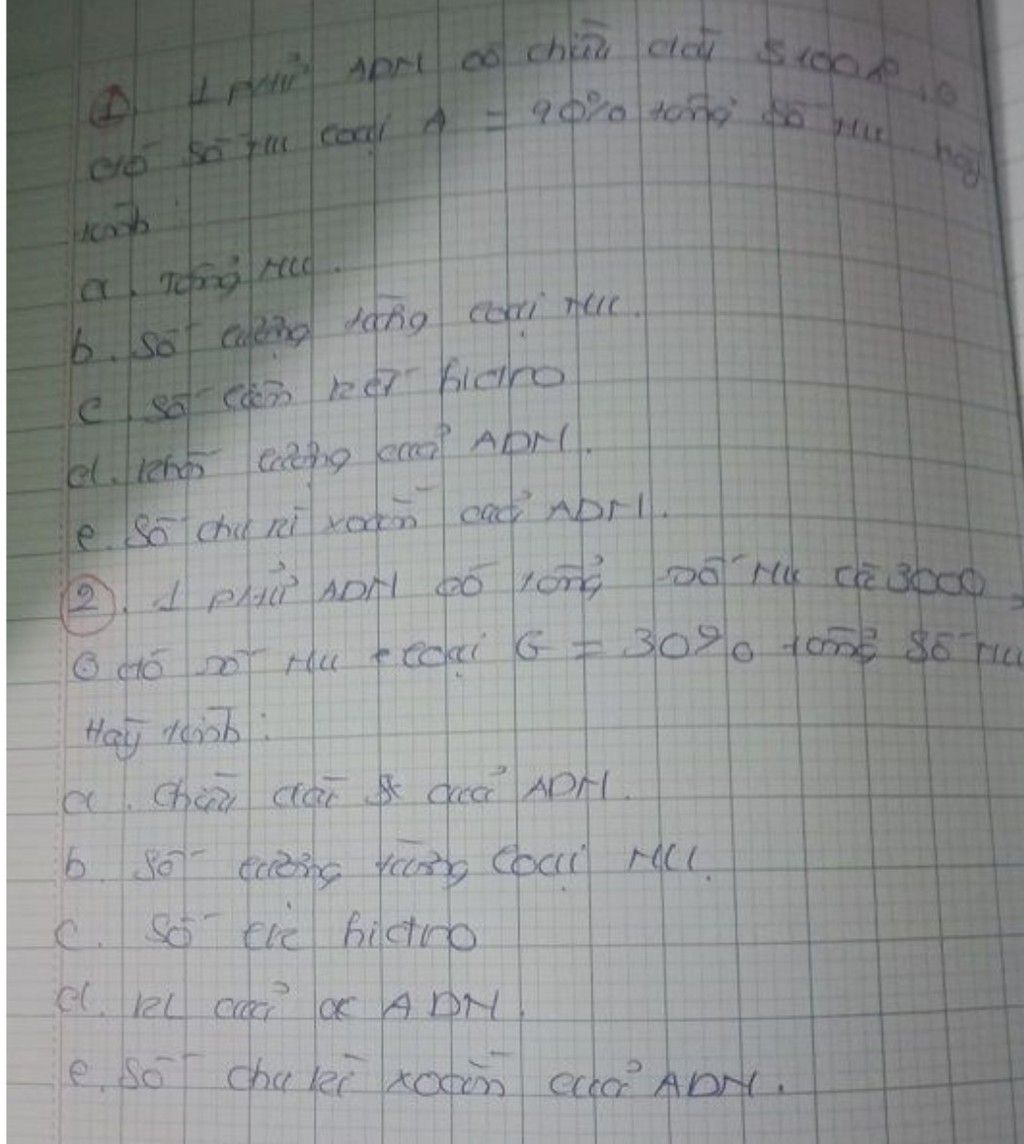 ① 1 phtử ADN có chiều dài 5100A°, ở
đó số nu loại A = 20% tổng số nu. hãy
tính
a. Tổng nu.
b. Số lượng từng loại nu.
c. số liên kết hiđro
d. khối lượng của ADN.
e. Số chu kì xoắn của ADN.
②. 1 phtử ADN có tổng số nu là 3000,
ở đó số nu loại G = 30% tổng số nu
Hãy tính:
a. chiều dài của ADN.
b. Số lượng từng loại nu.
c. số lk hiđro
d. kl của ADN.
e. Số chu kì xoắn của ADN.